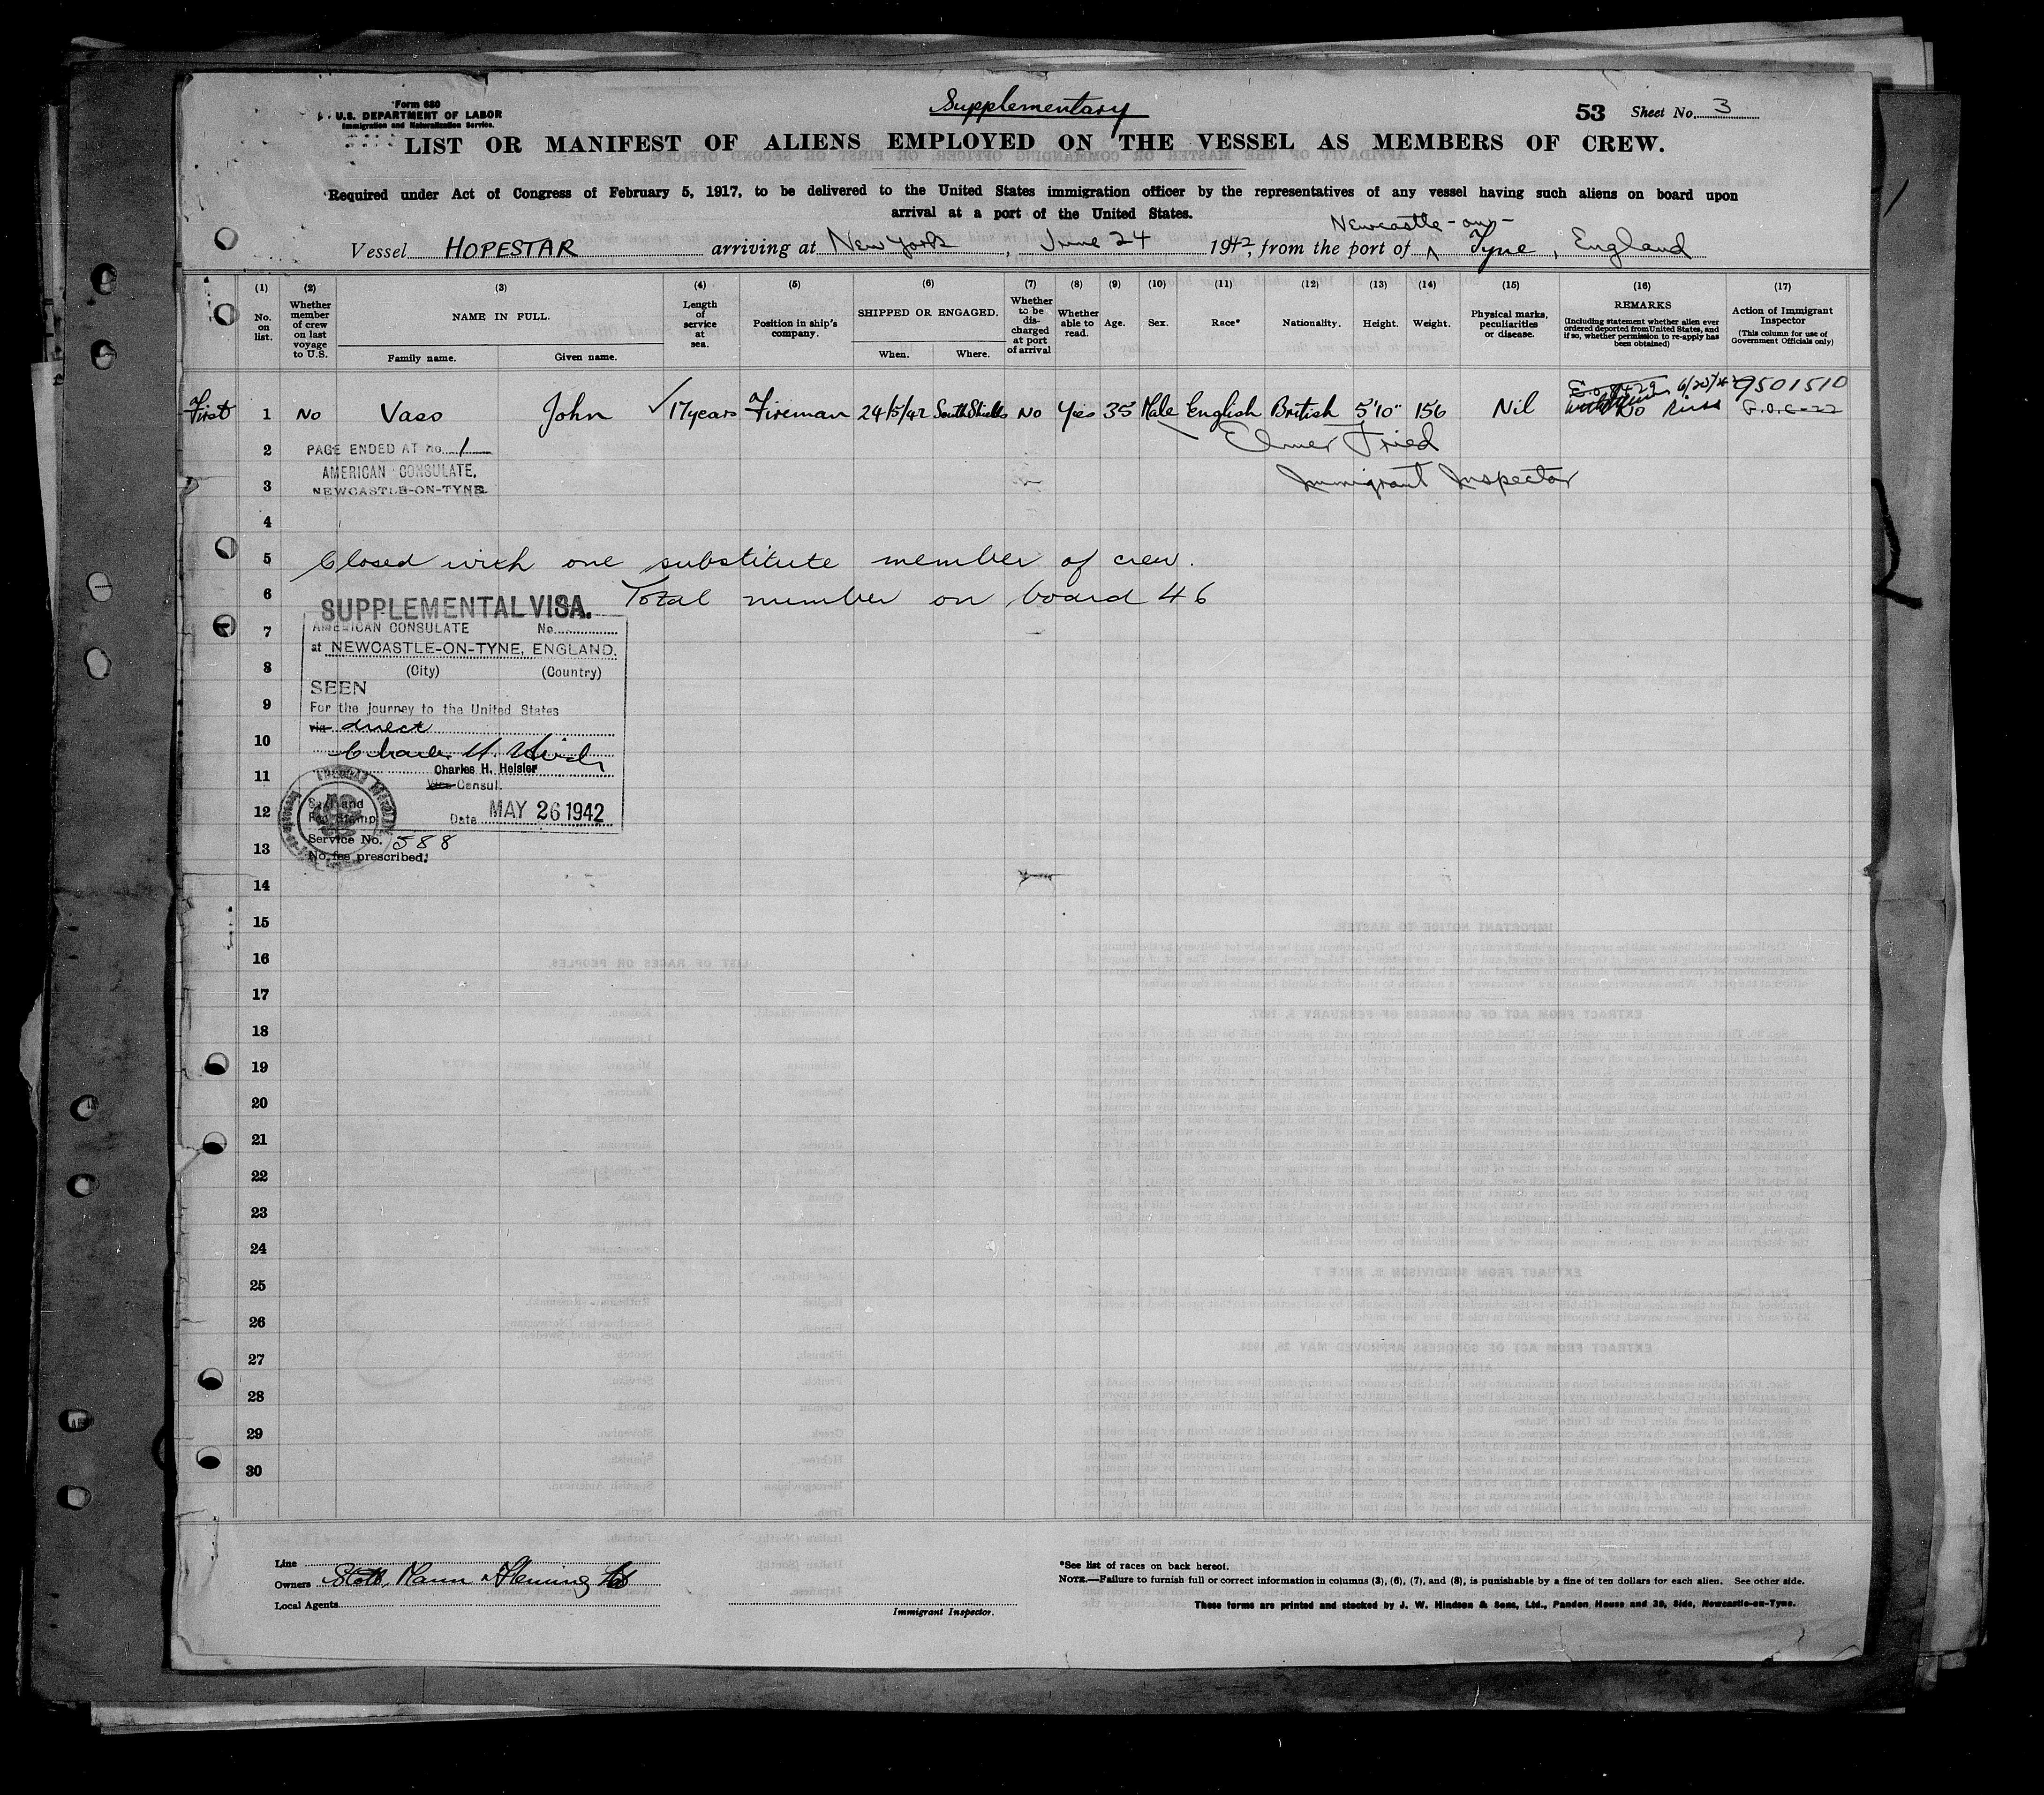 Form 680
U.S. DEPARTMENT OF LABOR
Immigration and Naturalization Service.
Supplementary
53 Sheet No. 3
LIST OR MANIFEST OF ALIENS EMPLOYED ON THE VESSEL AS MEMBERS OF CREW.
Required under Act of Congress of February 5, 1917, to be delivered to the United States immigration officer by the representatives of any vessel having such aliens on board upon
arrival at a port of the United States.
Newcastle-on-
Vessel HOPESTAR arriving at New York, June 24 1942, from the port of Tyne, England
(1) (2) (3) (4) (5) (6) (7) (8) (9) (10) (11) (12) (13) (14) (15) (16) (17)
No. on list.
Whether member of crew on last voyage to U.S.
NAME IN FULL.
Family name. Given name.
Length of service at sea.
Position in ship's company.
SHIPPED OR ENGAGED.
When. Where.
Whether to be discharged at port of arrival
Whether able to read.
Age.
Sex.
Race*
Nationality.
Height.
Weight.
Physical marks, peculiarities or disease.
REMARKS
(Including statement whether alien ever ordered deported from United States, and if so, whether permission to re-apply has been obtained)
Action of Immigrant Inspector
(This column for use of Government Officials only)
First 1 No Vaso John ✓ 17 years Fireman 24/5/42 South Shields No Yes 35 Male English British 5'10" 156 Nil 9501510
2 PAGE ENDED AT No. 1
Elmer Fried
AMERICAN CONSULATE,
3 NEWCASTLE-ON-TYNE
Immigrant Inspector
4
5 Closed with one substitute member of crew.
6 Total number on board 46
SUPPLEMENTAL VISA.
7 AMERICAN CONSULATE No.
at NEWCASTLE-ON-TYNE, ENGLAND.
8 (City) (Country)
SEEN
9 For the journey to the United States
via direct
10
Charles H. Heisler
11
Vice Consul.
12 Seal and
Fee Stamp
Date MAY 26 1942
13 Service No. 588
No fee prescribed.
14
15
16
17
18
19
20
21
22
23
24
25
26
27
28
29
30
Line
Owners Stott, Mann & Fleming Ltd
Local Agents
Immigrant Inspector.
*See list of races on back hereof.
NOTE.—Failure to furnish full or correct information in columns (3), (6), (7), and (8), is punishable by a fine of ten dollars for each alien. See other side.
These forms are printed and stocked by J. W. Hindson & Sons, Ltd., Pandon House and 39, Side, Newcastle-on-Tyne.